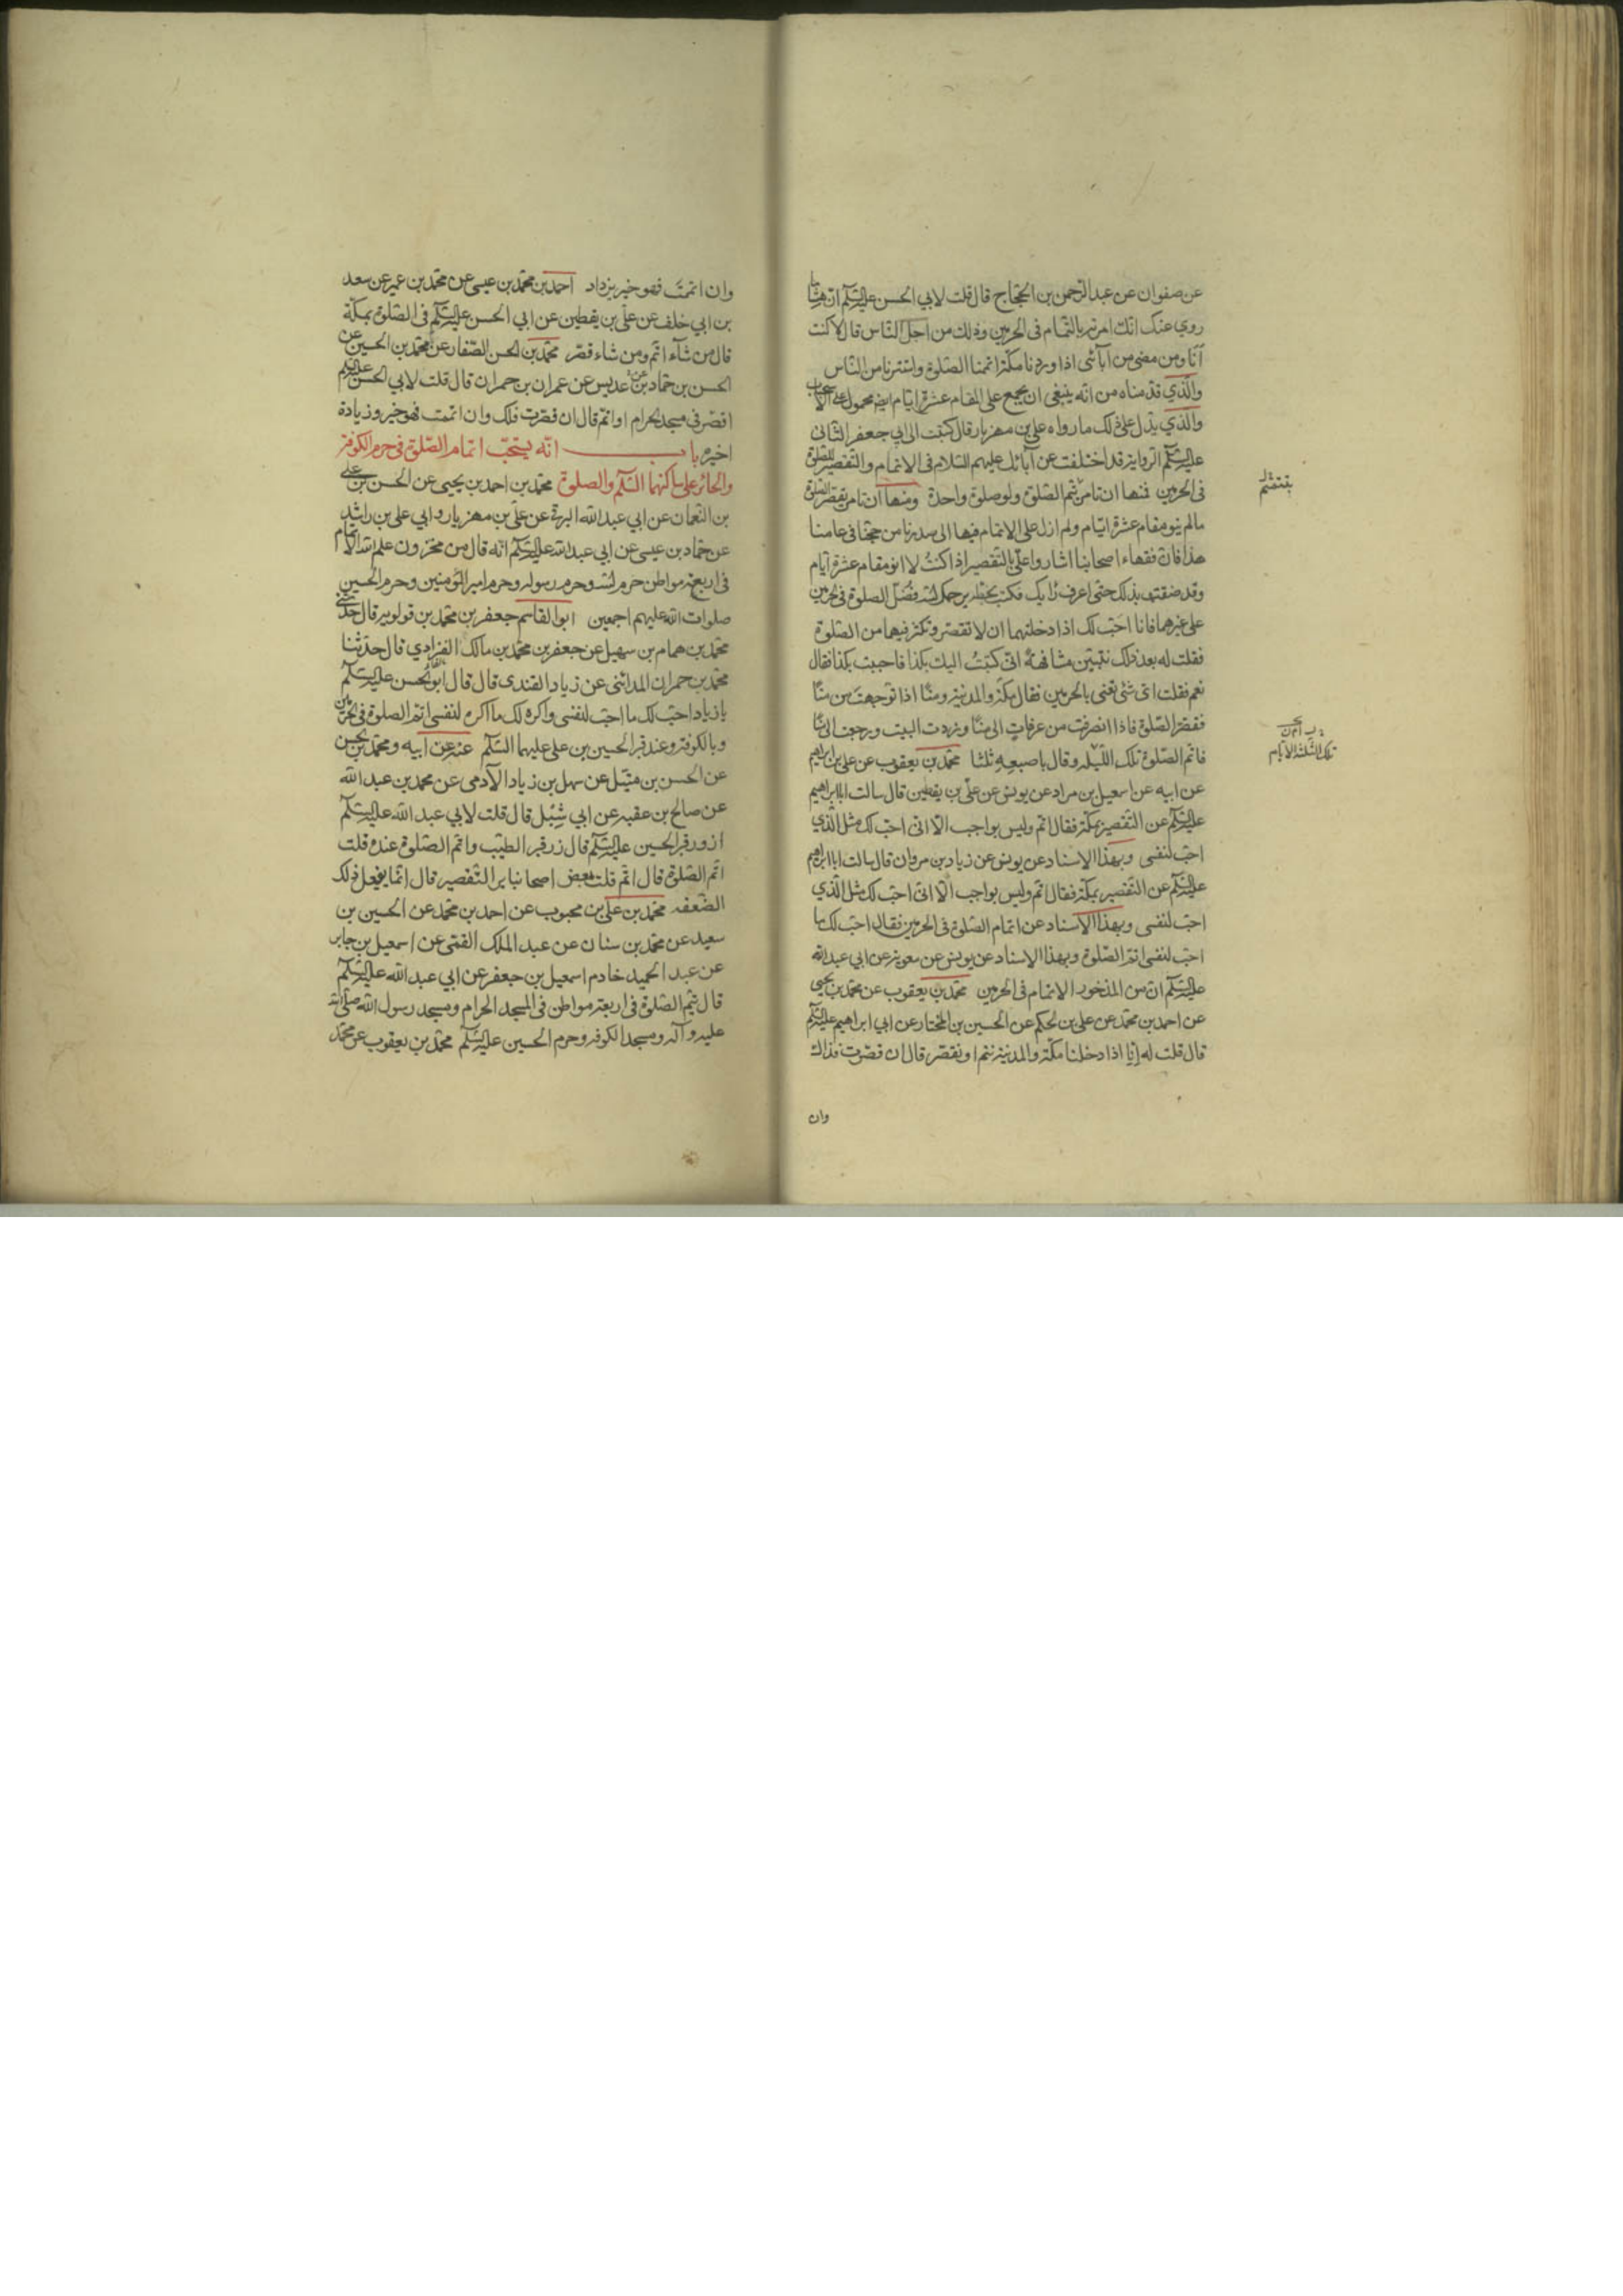 عن صفوان عن عبد الرحمن بن الحجاج قال قلت لابي الحسن عليه السلم ان هشاما
روي عنك انك امرته بالتمام في الحرمين وذلك من اجل الناس قال لا كنت
انا ومن مضى من ابآئي اذا وردنا مكة اتممنا الصلوة واستترنا من الناس
والذي قدمناه من انه ينبغي ان يجمع على المقام عشرة ايام ايضا محمول على الاستحباب
والذي يدل على ذلك ما رواه علي بن مهزيار قال كتبت الى ابي جعفر الثاني
عليه السلم الرواية قد اختلفت عن آبائك عليهم السلام في الاتمام والتقصير للصلوة
في الحرمين فمنها ان تامر بتتم الصلوة ولو صلوة واحدة ومنها ان تامر بقصر الصلوة
ما لم ينو مقام عشرة ايام ولم ازل على الاتمام فيها الى صدرنا من حجنا في عامنا
هذا فان فقهاء اصحابنا اشاروا علي بالتقصير اذا كنت لا انو مقام عشرة ايام
وقد ضقت بذلك حتى اعرف رايك فكتب بخطه يرحمك الله فضل الصلوة في الحرمين
على غيرهما فانا احب لك اذا دخلتهما ان لا تقصر وتكثر فيهما من الصلوة
فقلت له بعد ذلك بسنتين مشافهة اني كتبت اليك بكذا فاجبت بكذا فقال
نعم فقلت اي شئ تعني بالحرمين فقال مكة والمدينة ومنا اذا توجهت من منا
فقصر الصلوة فاذا انصرفت من عرفات الى منا وزرت البيت ورجعت الى منا
فاتم الصلوة تلك الليلة وقال باصبعه ثلثا محمد بن يعقوب عن علي بن ابراهيم
عن ابيه عن اسمعيل بن مراد عن يونس عن علي بن يقطين قال سالت ابا ابراهيم
عليه السلم عن التقصير بمكة فقال اتم وليس بواجب الا اني احب لك مثل الذي
احب لنفسي وبهذا الاسناد عن يونس عن زياد بن مروان قال سالت ابا ابراهيم
عليه السلم عن التقصير بمكة فقال اتم وليس بواجب الا اني احب لك مثل الذي
احب لنفسي وبهذا الاسناد عن اتمام الصلوة في الحرمين فقال احب لك ما
احب لنفسي اتم الصلوة وبهذا الاسناد عن يونس عن معوية عن ابي عبد الله
عليه السلم ان من المذخور الاتمام في الحرمين محمد بن يعقوب عن محمد بن يحيى
عن احمد بن محمد عن علي بن الحكم عن الحسين بن المختار عن ابي ابراهيم عليه السلم
قال قلت له انا اذا دخلنا مكة والمدينة نتم او نقصر قال ان قصرت فذاك
وان
تلك الثلثة الايام
وان اتممت فهو خير يزداد احمد بن محمد بن عيسى عن محمد بن عمير عن سعد
بن ابي خلف عن علي بن يقطين عن ابي الحسن عليه السلم في الصلوة بمكة
قال من شآء اتم ومن شاء قصر محمد بن الحسن الصفار عن محمد بن الحسين عن
الحسن بن حماد بن عديس عن عمران بن حمران قال قلت لابي الحسن عليه السلم
اقصر في مسجد الحرام او اتم قال ان قصرت فلك وان اتممت فهو خير وزيادة
الخير باب انه يستحب اتمام الصلوة في حرم الكوفة
والحائر على ساكنهما السلم والصلوة محمد بن احمد بن يحيى عن الحسن بن علي
بن النعمان عن ابي عبد الله البرقي عن علي بن مهزيار وابي علي بن راشد
عن حماد بن عيسى عن ابي عبد الله عليه السلم انه قال من مخزون علم الله الاتمام
في اربعة مواطن حرم الله وحرم رسوله وحرم امير المؤمنين وحرم الحسين
صلوات الله عليهم اجمعين ابو القاسم جعفر بن محمد بن قولويه قال حدثني
محمد بن همام بن سهيل عن جعفر بن محمد بن مالك الفزاري قال حدثنا
محمد بن حمران المدائني عن زياد القندي قال قال ابو الحسن عليه السلم
يا زياد احب لك ما احب لنفسي واكره لك ما اكره لنفسي اتم الصلوة في الحرمين
وبالكوفة وعند قبر الحسين بن علي عليهما السلم عنه عن ابيه ومحمد بن الحسن
عن الحسن بن متيل عن سهل بن زياد الآدمي عن محمد بن عبد الله
عن صالح بن عقبه عن ابي شبل قال قلت لابي عبد الله عليه السلم
ازور قبر الحسين عليه السلم قال زر قبر الطيب واتم الصلوة عنده قلت
اتم الصلوة قال اتم قلت بعض اصحابنا يرى التقصير قال انما يفعل ذلك
الضعفه محمد بن علي بن محبوب عن احمد بن محمد عن الحسين بن
سعيد عن محمد بن سنان عن عبد الملك القمي عن اسمعيل بن جابر
عن عبد الحميد خادم اسمعيل بن جعفر عن ابي عبد الله عليه السلم
قال تتم الصلوة في اربعة مواطن في المسجد الحرام ومسجد رسول الله صلى الله
عليه وآله ومسجد الكوفه وحرم الحسين عليه السلم محمد بن يعقوب عن محمد